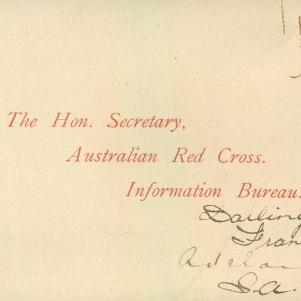 The Hon. Secretary,
Australian Red Cross.
Information Bureau.
Darling
Fran
Adelai
S.A.